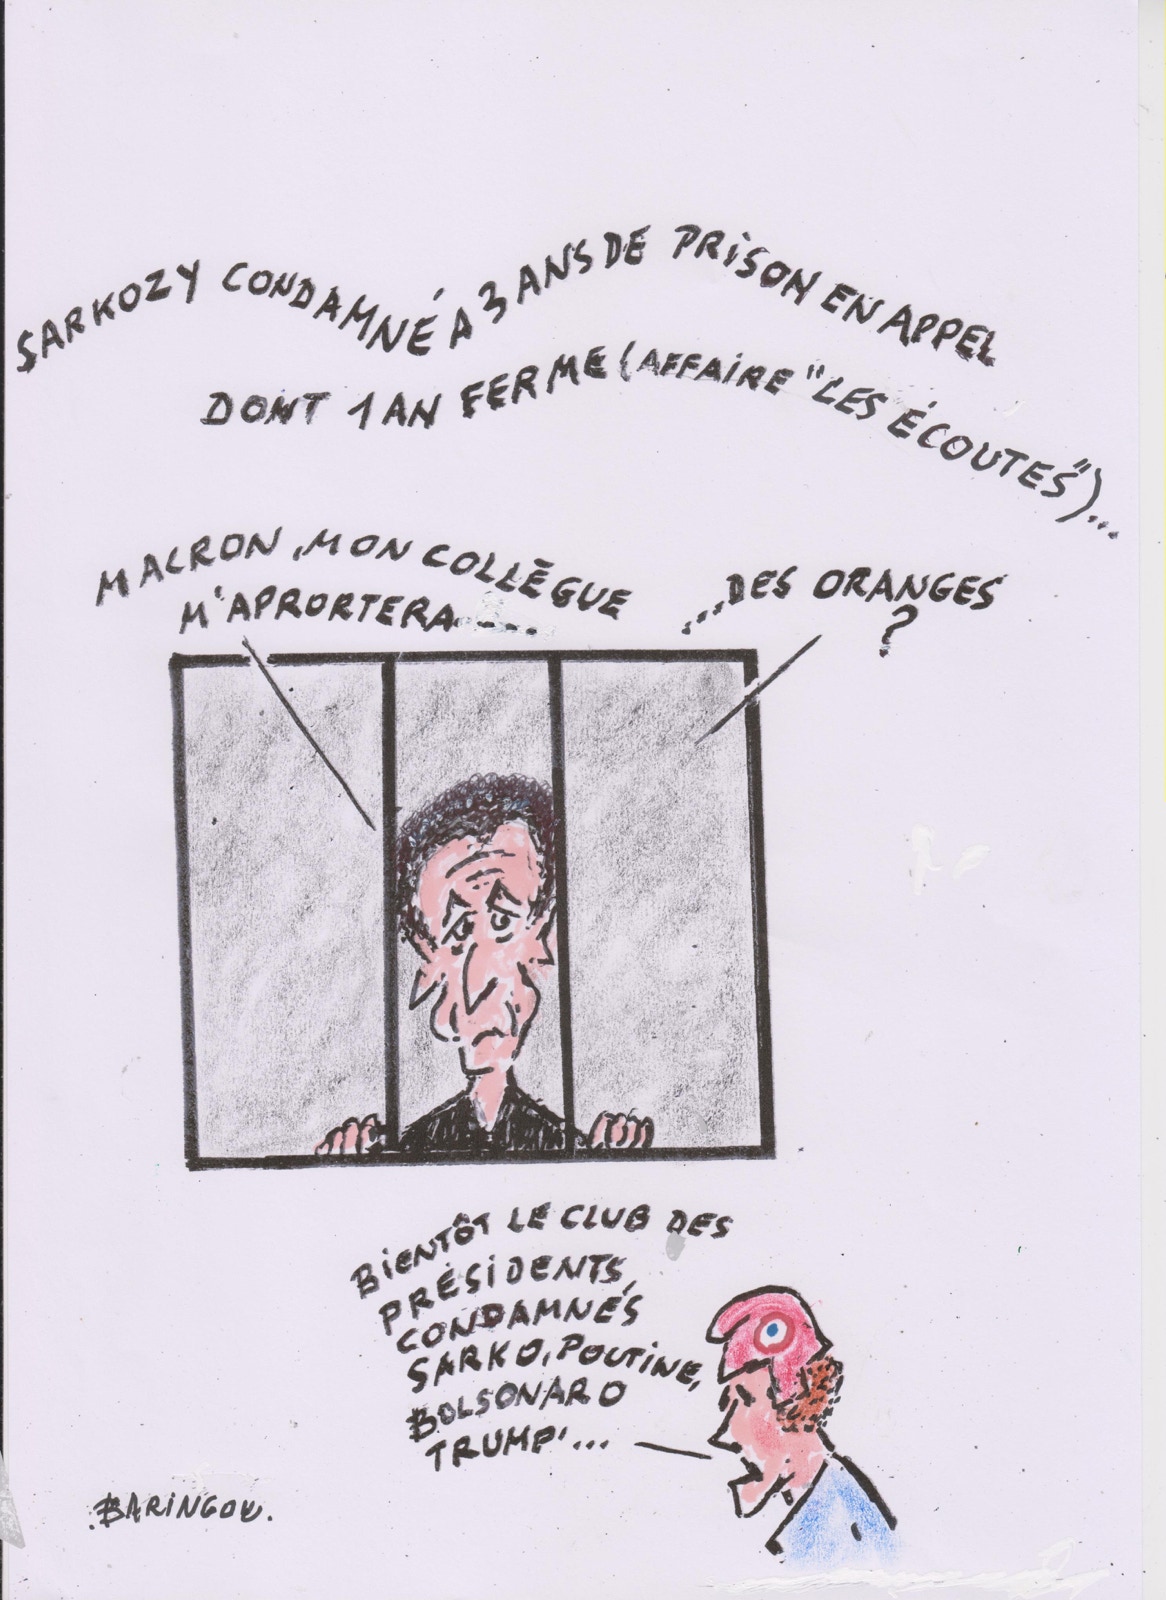 SARKOZY CONDAMNÉ A 3 ANS DE PRISON EN APPEL
DONT 1 AN FERME (AFFAIRE "LES ÉCOUTES")...
MACRON, MON COLLÈGUE
M'APRORTERA......
...DES ORANGES
?
BIENTÔT LE CLUB DES
PRÉSIDENTS,
CONDAMNÉS
SARKO, POUTINE,
BOLSONARO
TRUMP'...
.BARINGOU.